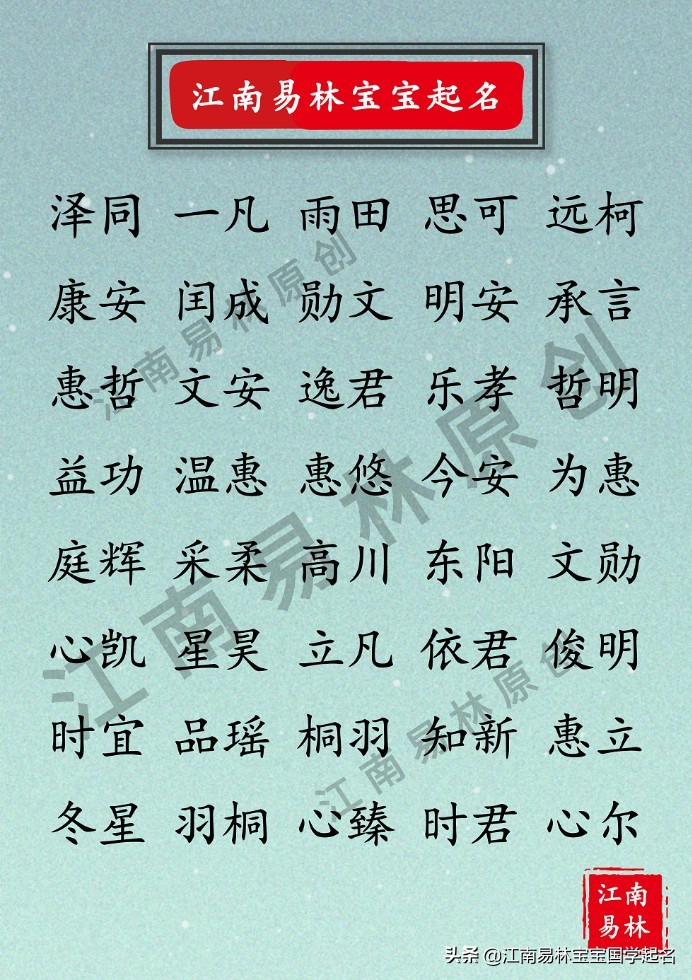 江南易林宝宝起名
泽同 一凡 雨田 思可 远柯
康安 闰成 勋文 明安 承言
惠哲 文安 逸君 乐孝 哲明
益功 温惠 惠悠 今安 为惠
庭辉 采柔 高川 东阳 文勋
心凯 星昊 立凡 依君 俊明
时宜 品瑶 桐羽 知新 惠立
冬星 羽桐 心臻 时君 心尔
江南易林原创
江南易林原创
江南易林原创
江南
易林
头条 @江南易林宝宝国学起名